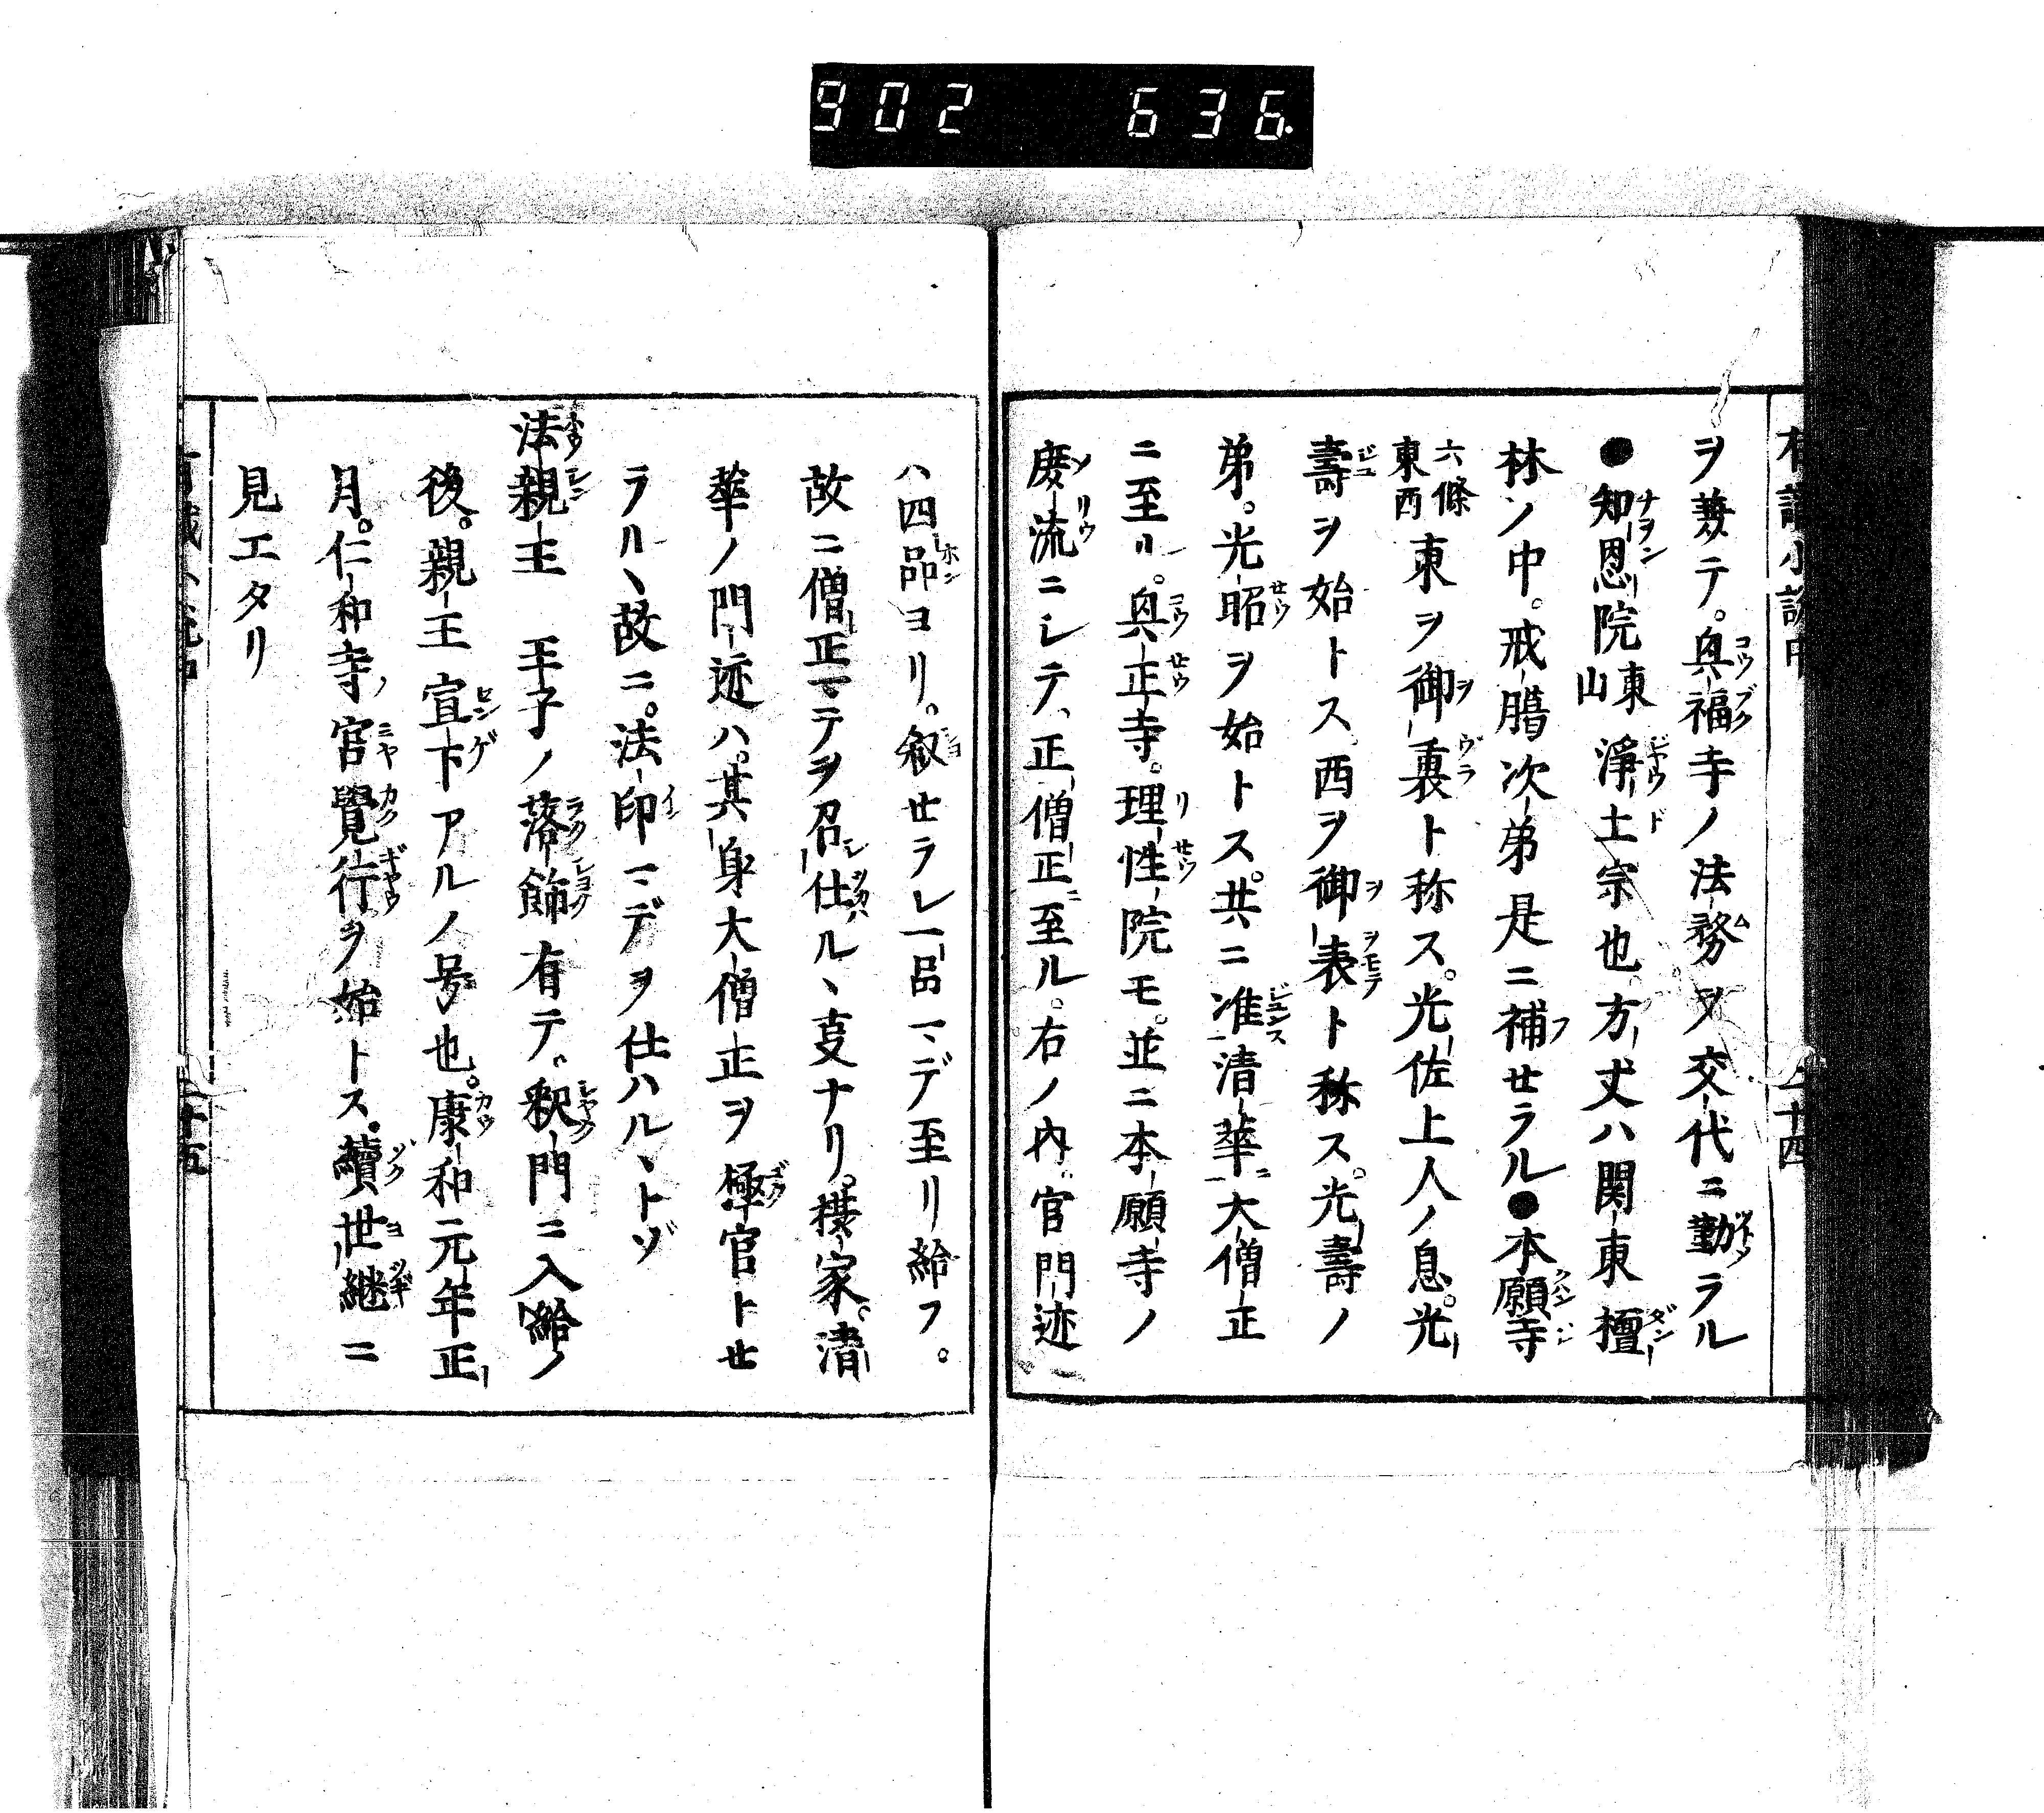 902 636
ヲ兼テ。興福寺ノ法務ヲ交代ニ勤ラル
●知恩院東山浄土宗也。方丈ハ関東檀
林ノ中。戒臈次弟是ニ補セラル●本願寺
六條東西東ヲ御裏ト称ス。光佐上人ノ息。光
壽ヲ始トス。西ヲ御表ト称ス。光壽ノ
弟。光昭ヲ始トス。共ニ准清華ニ大僧正
ニ至ル。興正寺。理性院モ。並ニ本願寺ノ
庶流ニシテ、正僧正ニ至ル。右ノ内。官門迹
ハ四品ヨリ。叙セラレ一品マデ至リ給フ。
故ニ僧正マテヲ召仕ルヽ支ナリ。攝家。清
華ノ門迹ハ。其身大僧正ヲ極官トセ
ラルヽ故ニ。法印マデヲ仕ハルヽトゾ
法親王 王子ノ落飾有テ。釈門ニ入給ノ
後。親王宣下アルノ号也。康和元年正
月。仁和寺ノ宮覺行ヲ始トス。續世継ニ
見エタリ